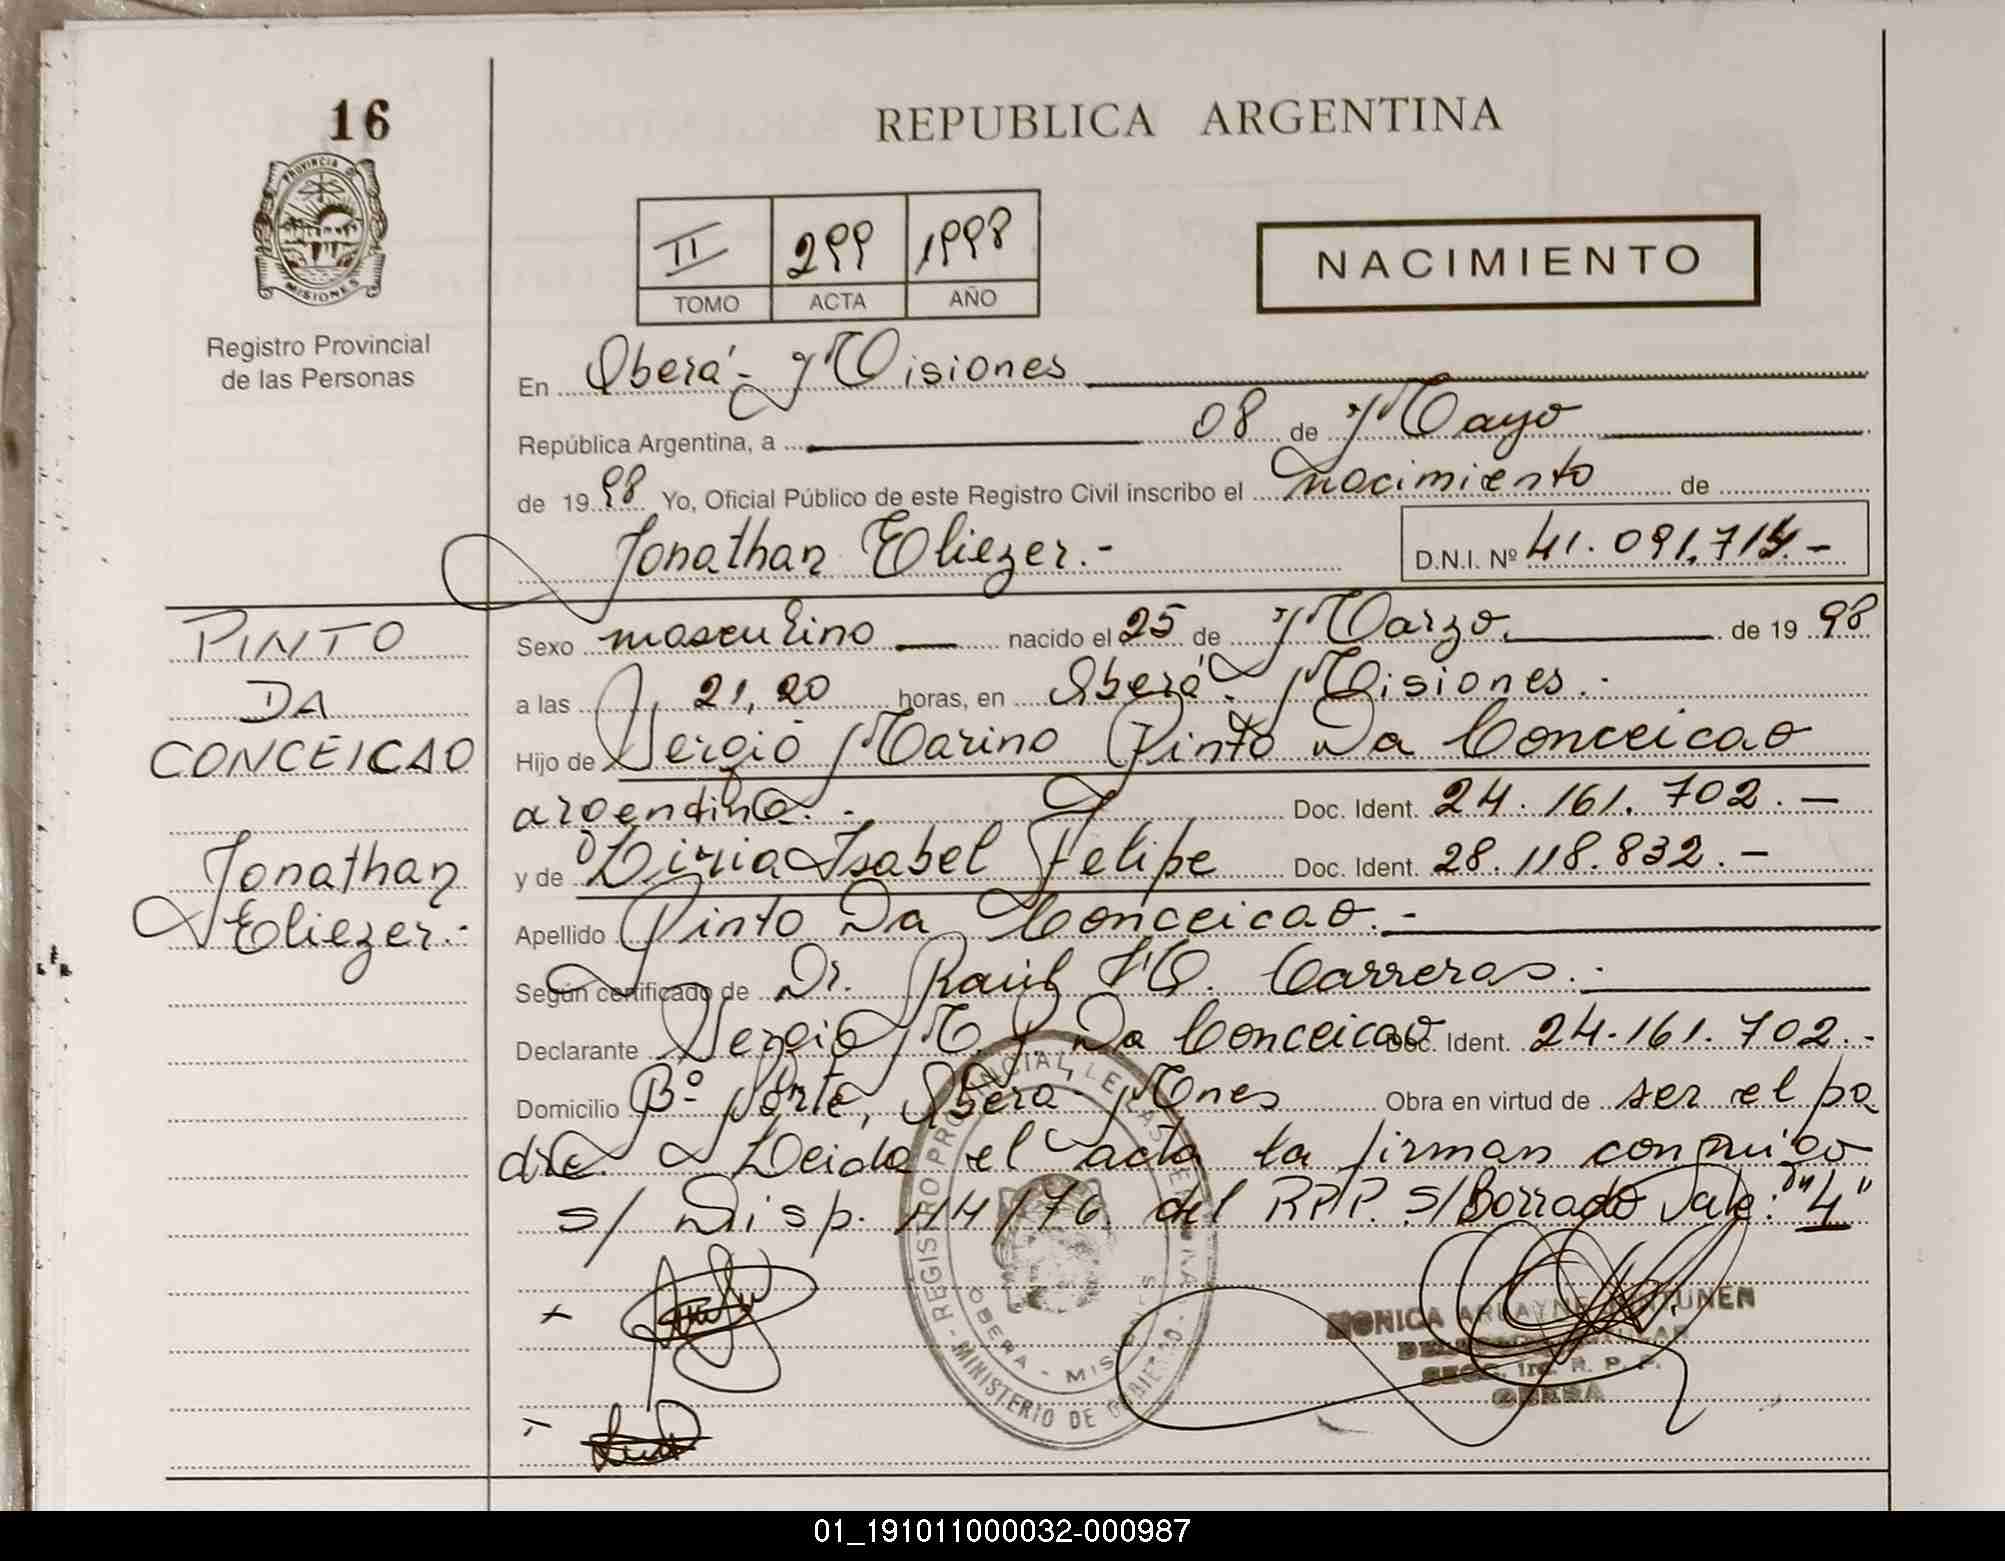 16
REPUBLICA ARGENTINA
PROVINCIA DE
MISIONES
Registro Provincial
de las Personas
II 299 1998
TOMO ACTA AÑO
NACIMIENTO
En Oberá - Misiones
República Argentina, a 08 de Mayo
de 1998 Yo, Oficial Público de este Registro Civil inscribo el nacimiento de
Jonathan Eliezer.-
D.N.I. Nº 41.091.714.-
PINTO
DA
CONCEICAO
Jonathan
Eliezer.-
Sexo masculino nacido el 25 de Marzo de 1998
a las 21,20 horas, en Oberá - Misiones.-
Hijo de Sergio Marino Pinto Da Conceicao
argentino.- Doc. Ident. 24.161.702.-
y de Liria Isabel Felipe Doc. Ident. 28.118.832.-
Apellido Pinto Da Conceicao.-
Según certificado de Dr. Raúl Carreras.-
Declarante Sergio M. P. Da Conceicao Doc. Ident. 24.161.702.-
Domicilio Bº Norte, Oberá - Mnes Obra en virtud de ser el pa
dre. Leida el acta la firman conmigo
s/ Disp. 114/76 del RPP. S/Borrado Vale: "4"
REGISTRO PROVINCIAL DE LAS PERSONAS
OBERA - MISIONES
MINISTERIO DE GOBIERNO
MONICA
R. P. P.
OBERA
01_191011000032-000987